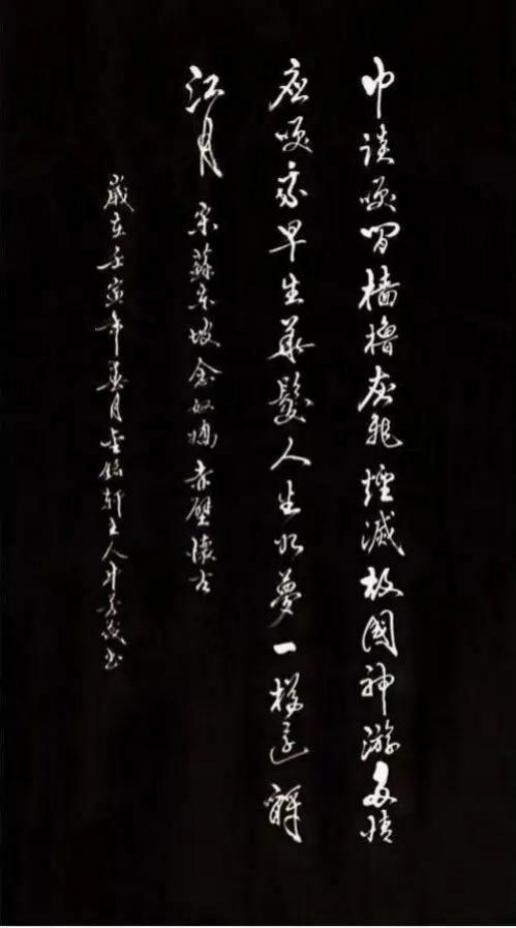 巾談笑間檣櫓灰飛煙滅故國神游多情
应笑我早生華髮人生如夢一樽还酹
江月 宋蘇東坡念奴嬌赤壁懷古
歲在壬寅年月軒主人书